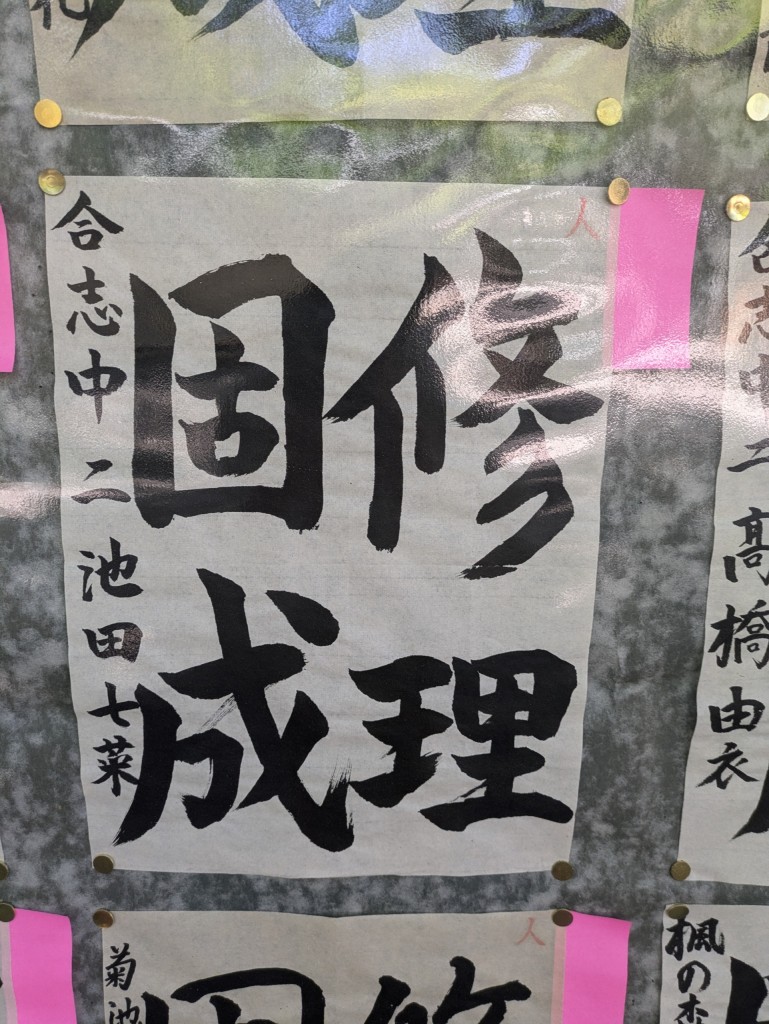 人
修理
固成
合志中 二 池田七菜
合志中 二 髙橋由衣
人
菊池
楓の